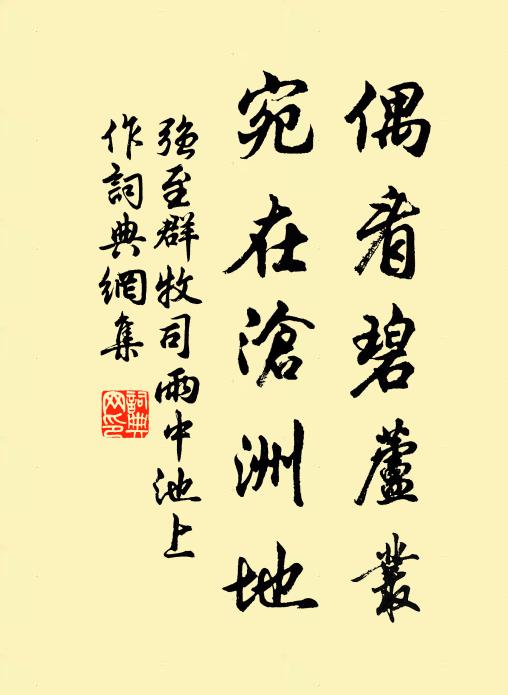 偶看碧蘆叢
宛在滄洲地
強至群牧司雨中池上
作詞典網集
詞典
网印